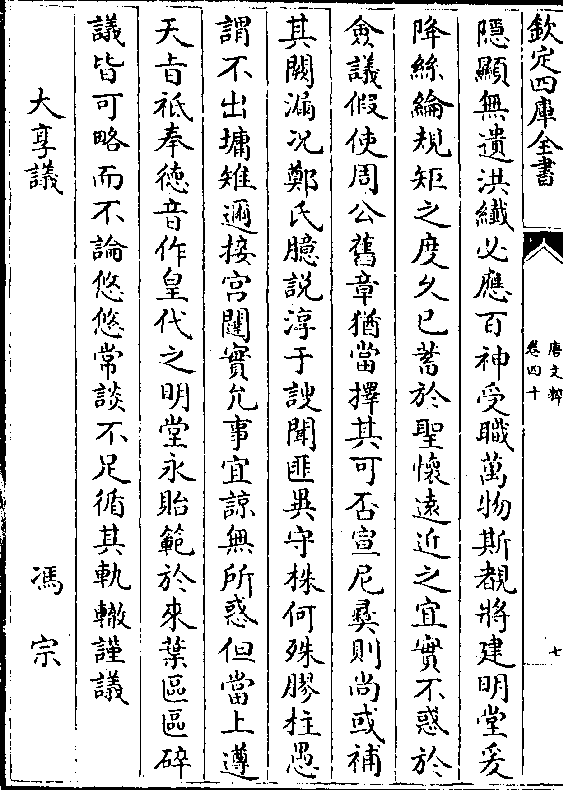 欽定四庫全書
唐文粹
卷四十
七
隱顯無遺洪纎必應百神受職萬物斯覩將建明堂爰
降絲綸規矩之度久已蓄於聖懷逺近之宜實不惑於
僉議假使周公舊章猶當擇其可否宣尼彞則尚或補
其闕漏况鄭氏臆説淳于謏聞匪異守株何殊膠柱愚
謂不出墉雉邇接宫闈實允事宜諒無所惑但當上遵
天㫖祗奉徳音作皇代之明堂永貽範於來葉區區碎
議皆可略而不論悠悠常談不足循其軌轍謹議
大享議 馮宗